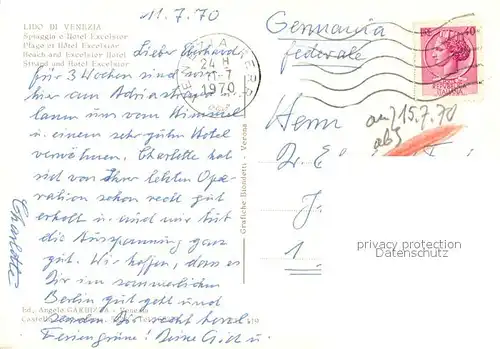 11.7.70
LIDO DI VENEZIA
Spiaggia e Hôtel Excelsior
Plage et Hôtel Excelsior
Beach and Excelsior Hôtel
Strand und Hôtel Excelsior
Lieber Eberhard
für 3 Wochen sind wir
hier am Adriastrand
lassen uns vom Himmel
u. einem sehr guten Hotel
verwöhnen. Charlotte hat
sich von Ihrer letzten Ope-
ration schon recht gut
erholt u. und mir tut
die Ausspannung ganz
gut. Wir hoffen, dass es
Dir im sommerlichen
Berlin gut geht und
senden Dir recht herzl.
Feriengrüsse! Deine
Charlotte
Ed. Angelo GARBIZZA - Venezia
Grafiche Biondetti - Verona
FERR
24 H
11-7
1970
Germania
federale
40
Herrn
an 15.7.70
ab
Dr. E
J.
1
privacy protection
Datenschutz